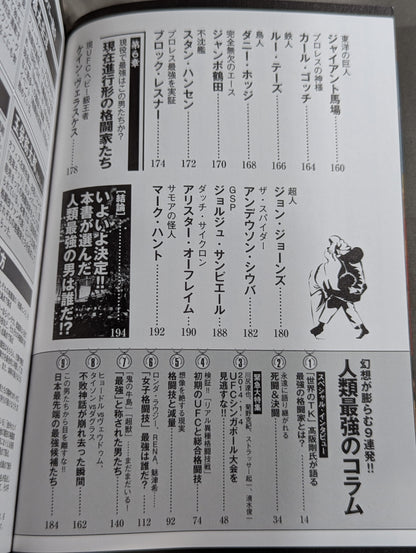 東洋の巨人
ジャイアント馬場……160
プロレスの神様
カール・ゴッチ……164
鉄人
ルー・テーズ……166
鳥人
ダニー・ホッジ……168
完全無欠のエース
ジャンボ鶴田……170
不沈艦
スタン・ハンセン……172
プロレス最強を実証
ブロック・レスナー……174
第6章
現役で最強はこの男たちか?
現在進行形の格闘家たち
現UFCヘビー級王者
ケイン・ヴェラスケス……178
超人
ジョン・ジョーンズ……180
ザ・スパイダー
アンデウソン・シウバ……182
GSP
ジョルジュ・サンピエール……188
ダッチ・サイクロン
アリスター・オーフレイム……190
サモアの怪人
マーク・ハント……192
【結論】
いよいよ決定!!
本書が選んだ
人類最強の男は誰だ!?……194
幻想が膨らむ9連発!!
人類最強のコラム
① スペシャル・インタビュー
「世界のTK」高阪剛氏が語る
最強の格闘家とは?……14
② 永遠に語り継がれる
死闘&決闘……34
③ 緊急大特集
川尻達也、菊野克紀、ストラッサー起一、清水俊一
2014・1・4
UFCシンガポール大会を
見逃すな!!……48
④ 検証!!「リアル異種格闘技戦」
初期のUFCと総合格闘技……74
⑤ 想像を絶する現実
格闘技と減量……92
⑥ ロンダ・ラウジー、RENA、魅津希…
「女子格闘技」最強は誰だ?……112
⑦ 「鬼の牛島」「超獣」……まだまだいる!
「最強」と称された男たち……140
⑧ ヒョードルvsヴェウドゥム、
タイソンvsダグラス
不敗神話が崩れ去った瞬間……162
⑨ この男たちから目を離すな!!
日本最先端の最強候補たち……184